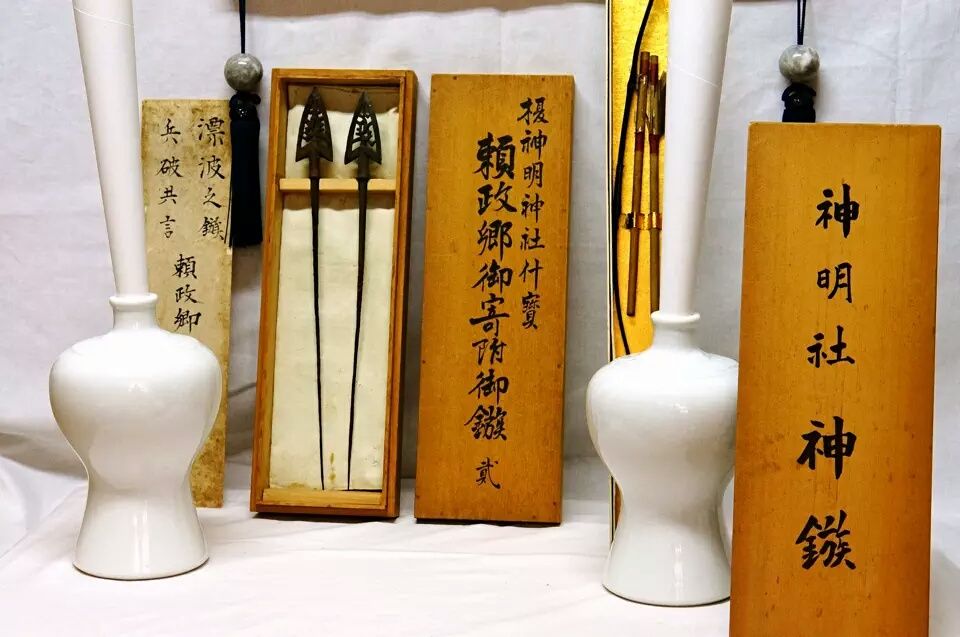 漂波之鏃
兵破共言
頼政卿
榎神明神社什寳
頼政卿御寄附御鏃 貳
神明社神鏃